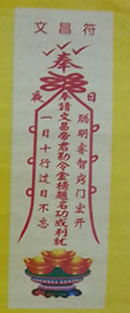 文昌符
奉
日
聰明睿智窍门宏开
奉請文昌帝君勅令金榜題名功成利就
夜
一目十行过目不忘